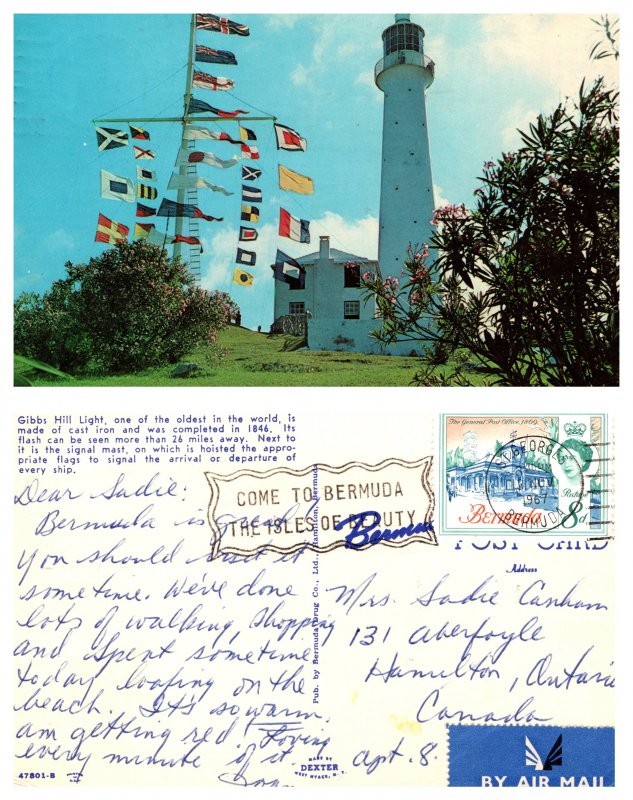 Gibbs Hill Light, one of the oldest in the world, is
made of cast iron and was completed in 1846. Its
flash can be seen more than 26 miles away. Next to
it is the signal mast, on which is hoisted the appro-
priate flags to signal the arrival or departure of
every ship.
Dear Sadie:
Bermuda is
you should visit it
sometime. We've done
lots of walking, shopping
and spent sometime
today loafing on the
beach. It's so warm.
am getting red
every minute of it.
Loving
COME TO BERMUDA
THE ISLES OF BEAUTY
Bermuda
Pub. by Bermuda Drug Co., Ltd., Hamilton, Bermuda
MADE BY
DEXTER
WEST NYACK, N. Y.
47801-B
The General Post Office, 1869
Bermuda 8d.
ST. GEORGES
NOV
1967
BERMUDA
POST CARD
Address
Mrs. Sadie Canham
131 Aberfoyle
Hamilton, Ontario
Canada
apt. 8.
BY AIR MAIL